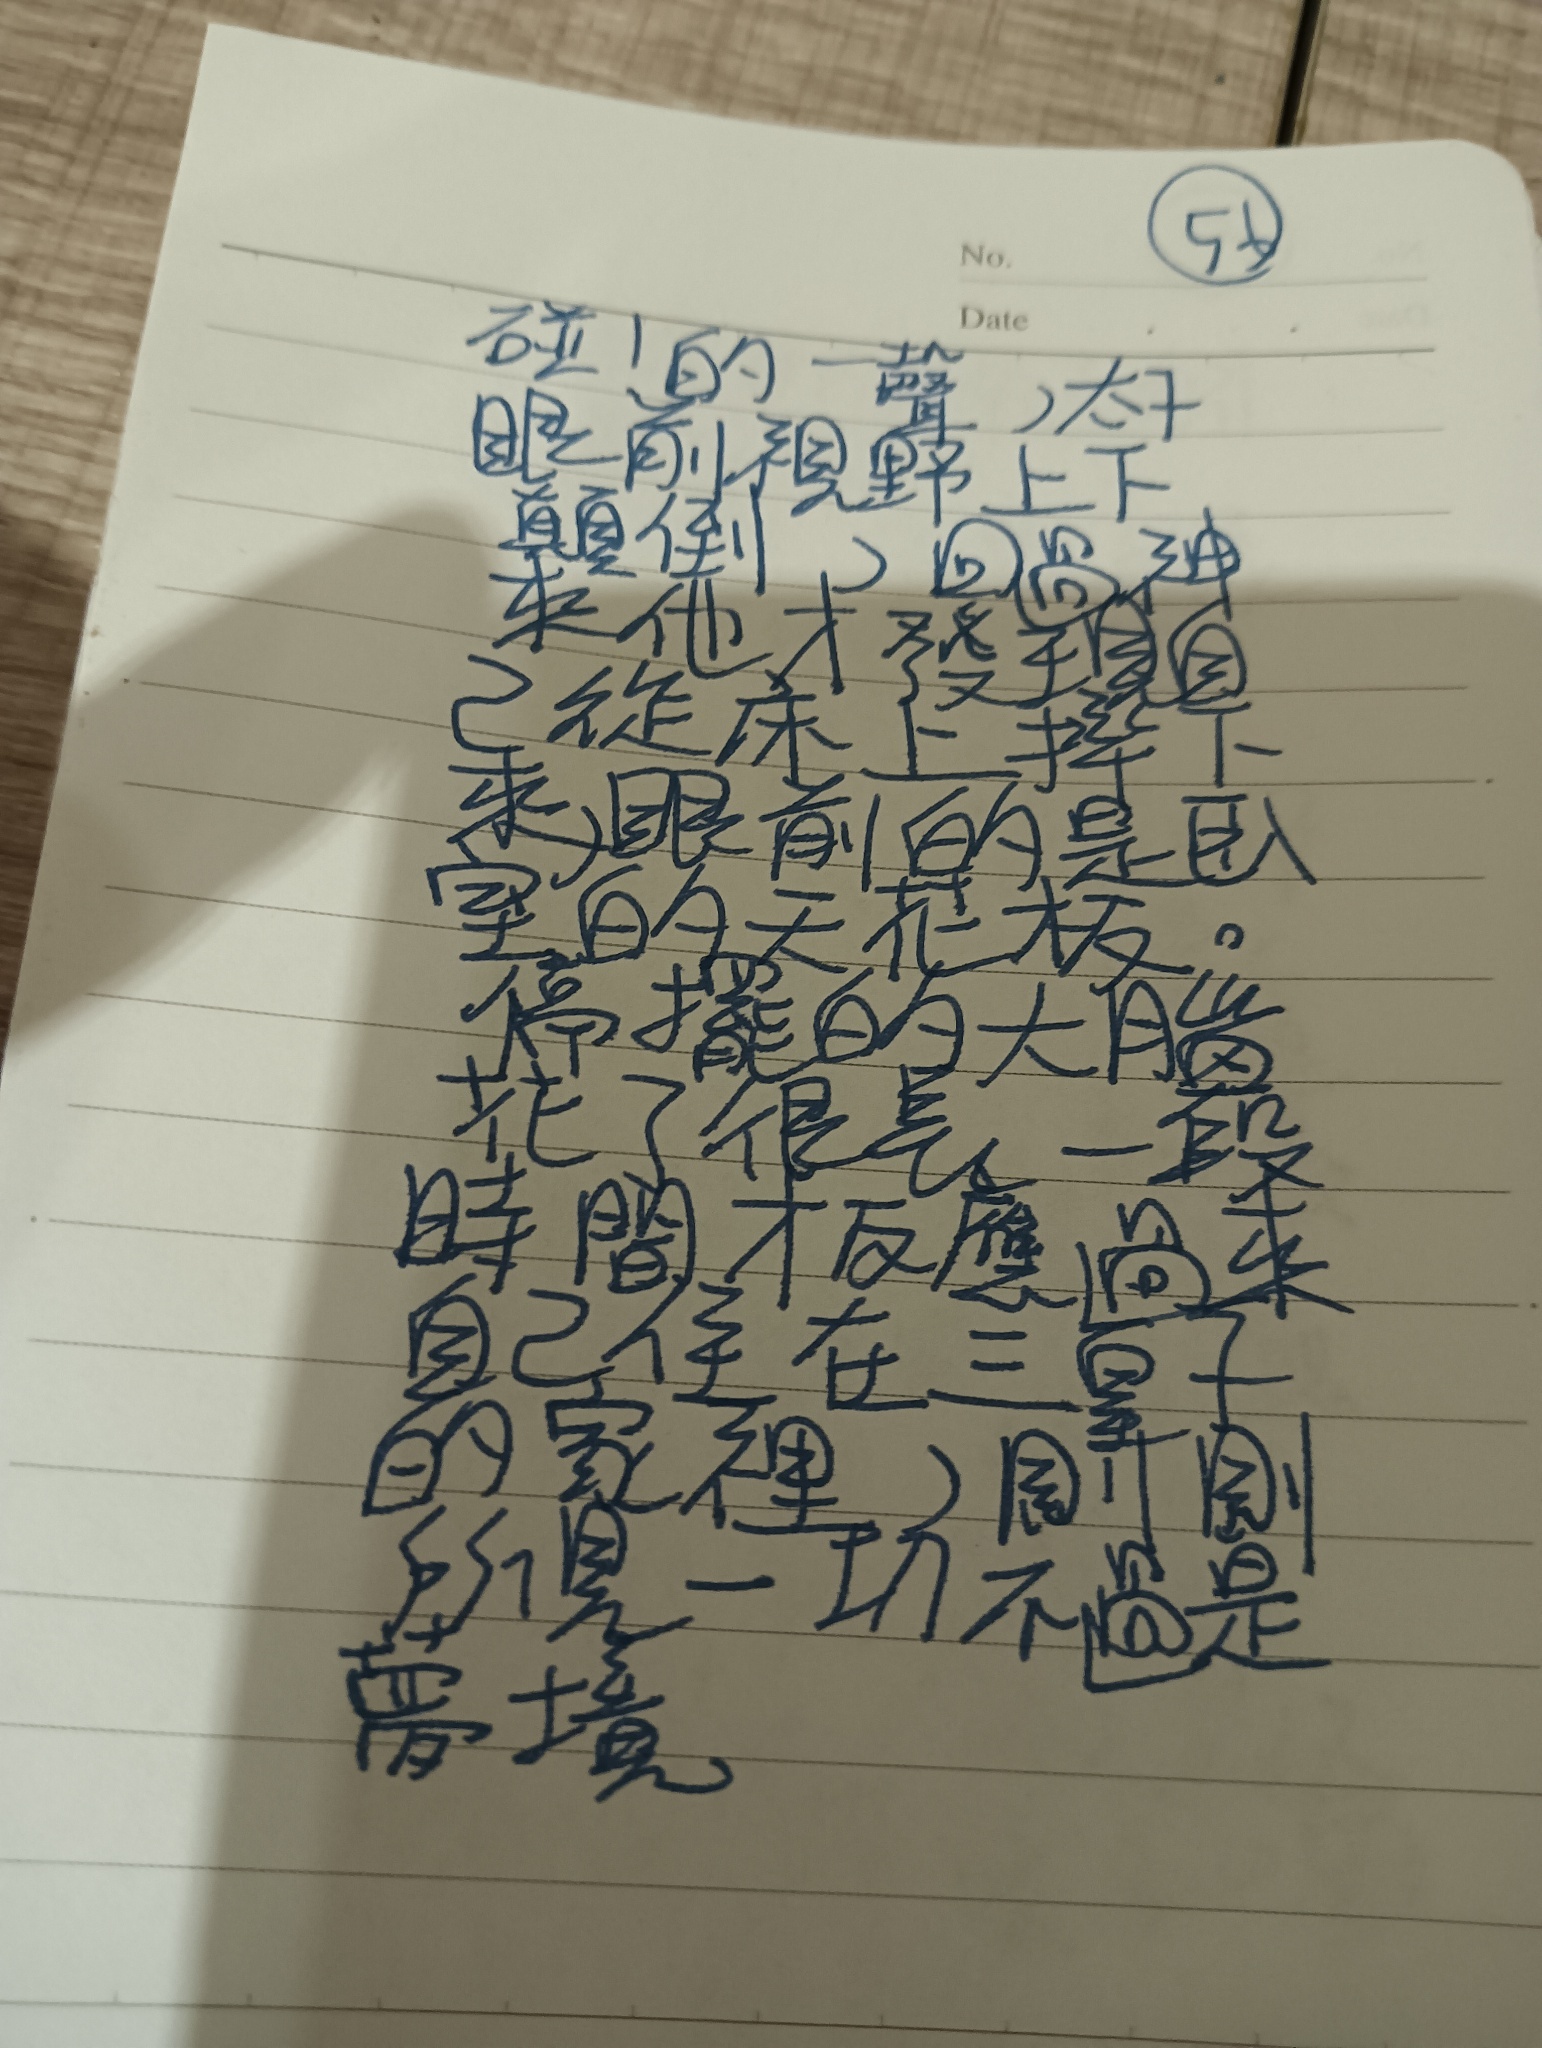 No.
Date
碰!的一聲,太子
眼前視野上下
顛倒,回過神
來他才發現自
己從床上摔下
來,眼前的是臥
室的天花板。
停擺的大腦
花了很長一段
時間才反應過來
自己住在三單子
的家裡,周 剛
所見一切不過是
夢境